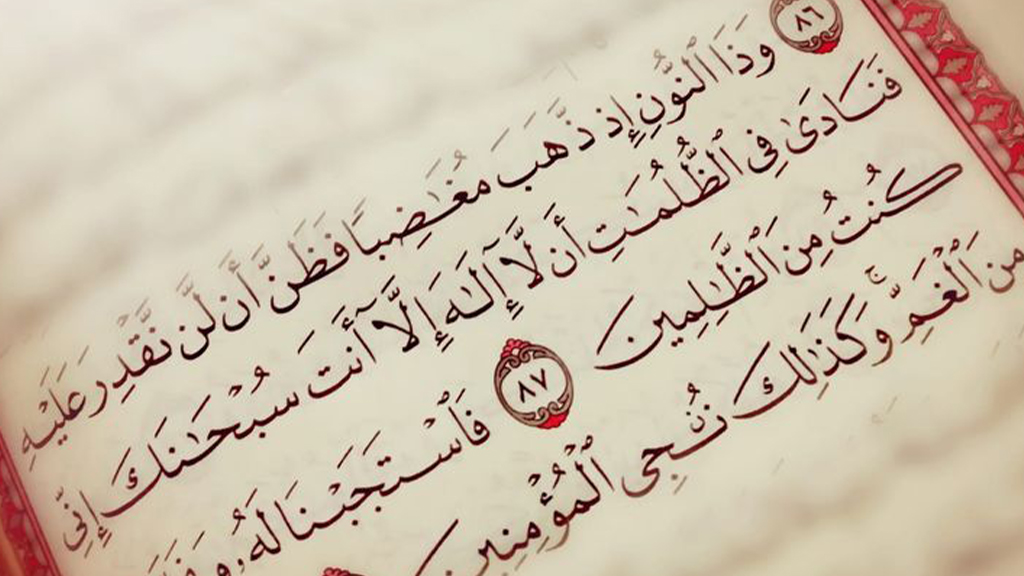 ٨٦
وَذَا ٱلنُّونِ إِذ ذَّهَبَ مُغَٰضِبًا فَظَنَّ أَن لَّن نَّقْدِرَ عَلَيْهِ
فَنَادَىٰ فِى ٱلظُّلُمَٰتِ أَن لَّآ إِلَٰهَ إِلَّآ أَنتَ سُبْحَٰنَكَ إِنِّى
كُنتُ مِنَ ٱلظَّٰلِمِينَ ٨٧ فَٱسْتَجَبْنَا لَهُۥ
مِنَ ٱلْغَمِّ ۚ وَكَذَٰلِكَ نُـۨجِى ٱلْمُؤْمِنِينَ